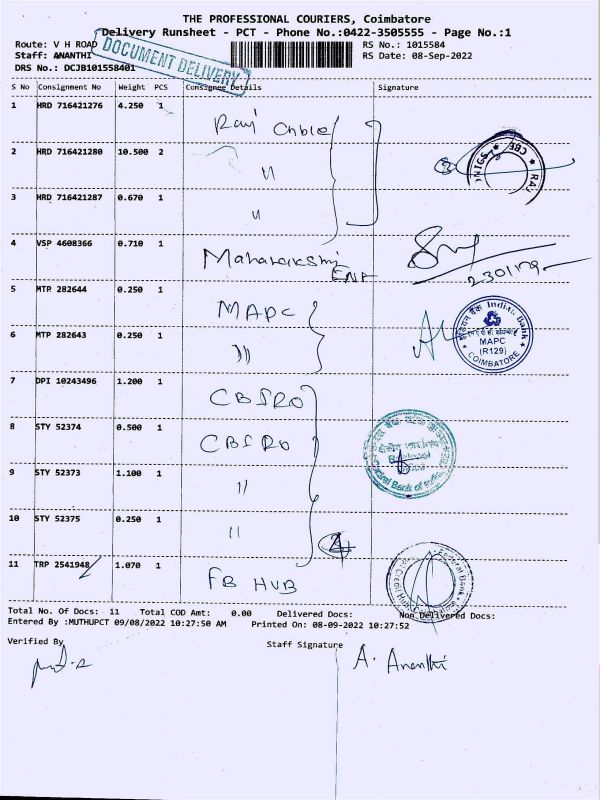 THE PROFESSIONAL COURIERS, Coimbatore
Delivery Runsheet - PCT - Phone No.:0422-3505555 - Page No.:1
Route: V H ROAD
RS No.: 1015584
Staff: ANANTHI
RS Date: 08-Sep-2022
DRS No.: DCJB101558401
DOCUMENT DELIVERY
S No Consignment No Weight PCS Consignee Details Signature
1 HRD 716421276 4.250 1 Ravi Cable
2 HRD 716421280 10.500 2 "
3 HRD 716421287 0.670 1 "
4 VSP 4608366 0.710 1
5 MTP 282644 0.250 1 MAPC
6 MTP 282643 0.250 1 "
इंडियन बैंक Indian Bank
MAPC
(R129)
COIMBATORE
7 DPI 10243496 1.200 1 CBSRO
8 STY 52374 0.500 1 CBSRO
9 STY 52373 1.100 1 "
10 STY 52375 0.250 1 "
Central Bank of India
11 TRP 2541948 1.070 1 FB HUB
Federal Bank
Total No. Of Docs: 11 Total COD Amt: 0.00 Delivered Docs: Non Delivered Docs:
Entered By :MUTHUPCT 09/08/2022 10:27:50 AM Printed On: 08-09-2022 10:27:52
Verified By
Staff Signature
A. Ananthi